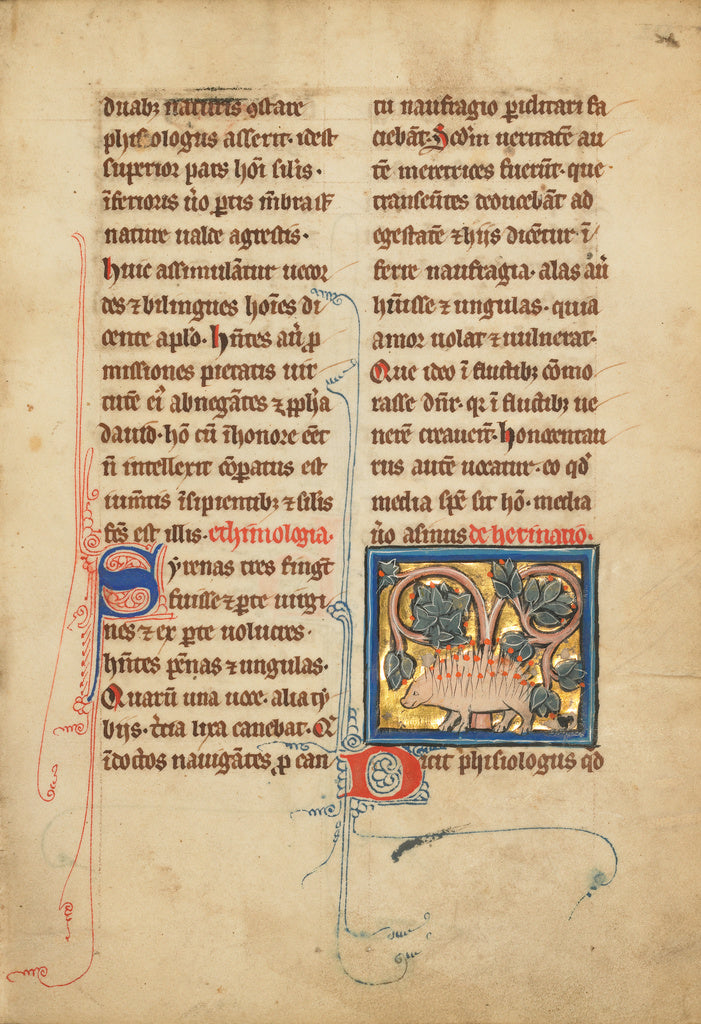 duabꝫ naturis ꝯstare
phisologus asserit· idest
superior pars hōi silis·
īferiores ůo ꝑtis mēbra ist
nature ualde agrestis·
huic assimulātur uecor
des ⁊ bilingues hoīes di
cente aplo· hn̄tes aū ꝓ
missiones pietatis uir
tutē ei abnegātes ⁊ ꝓpha
dauid· hō cū ī honore eēt
n̄ intellexit cōparatus est
iumētis īsipientibꝫ ⁊ silis
fcs est illis· ethimologia·
Syrenas tres fingūt
fuisse ⁊ ꝑte uirgi
nes ⁊ ex ꝑte uolucres·
hn̄tes pēnas ⁊ ungulas·
Quarū una uoce· alia ty
bijs· tcia lira canebat· Q
īdoctos nauigātes ꝑ can
tu naufragio ꝑiclitari fa
ciebāt· Scdm ueritatē au
tē meretrices fuerūt· que
transeūtes deducebāt ad
egestatē ⁊ hijs dicētur ī
ferre naufragia· alas aū
hūisse ⁊ ungulas· quia
amor uolat ⁊ uulnerat·
Que ideo ī fluctibꝫ cōmo
rasse dn̄r· qr ī fluctibꝫ ue
nerē creauerūt· honocentau
rus autē uocatur· eo qd
media spē sit hō· media
ůo asinus de herinatio·
Dicit phisiologus qd